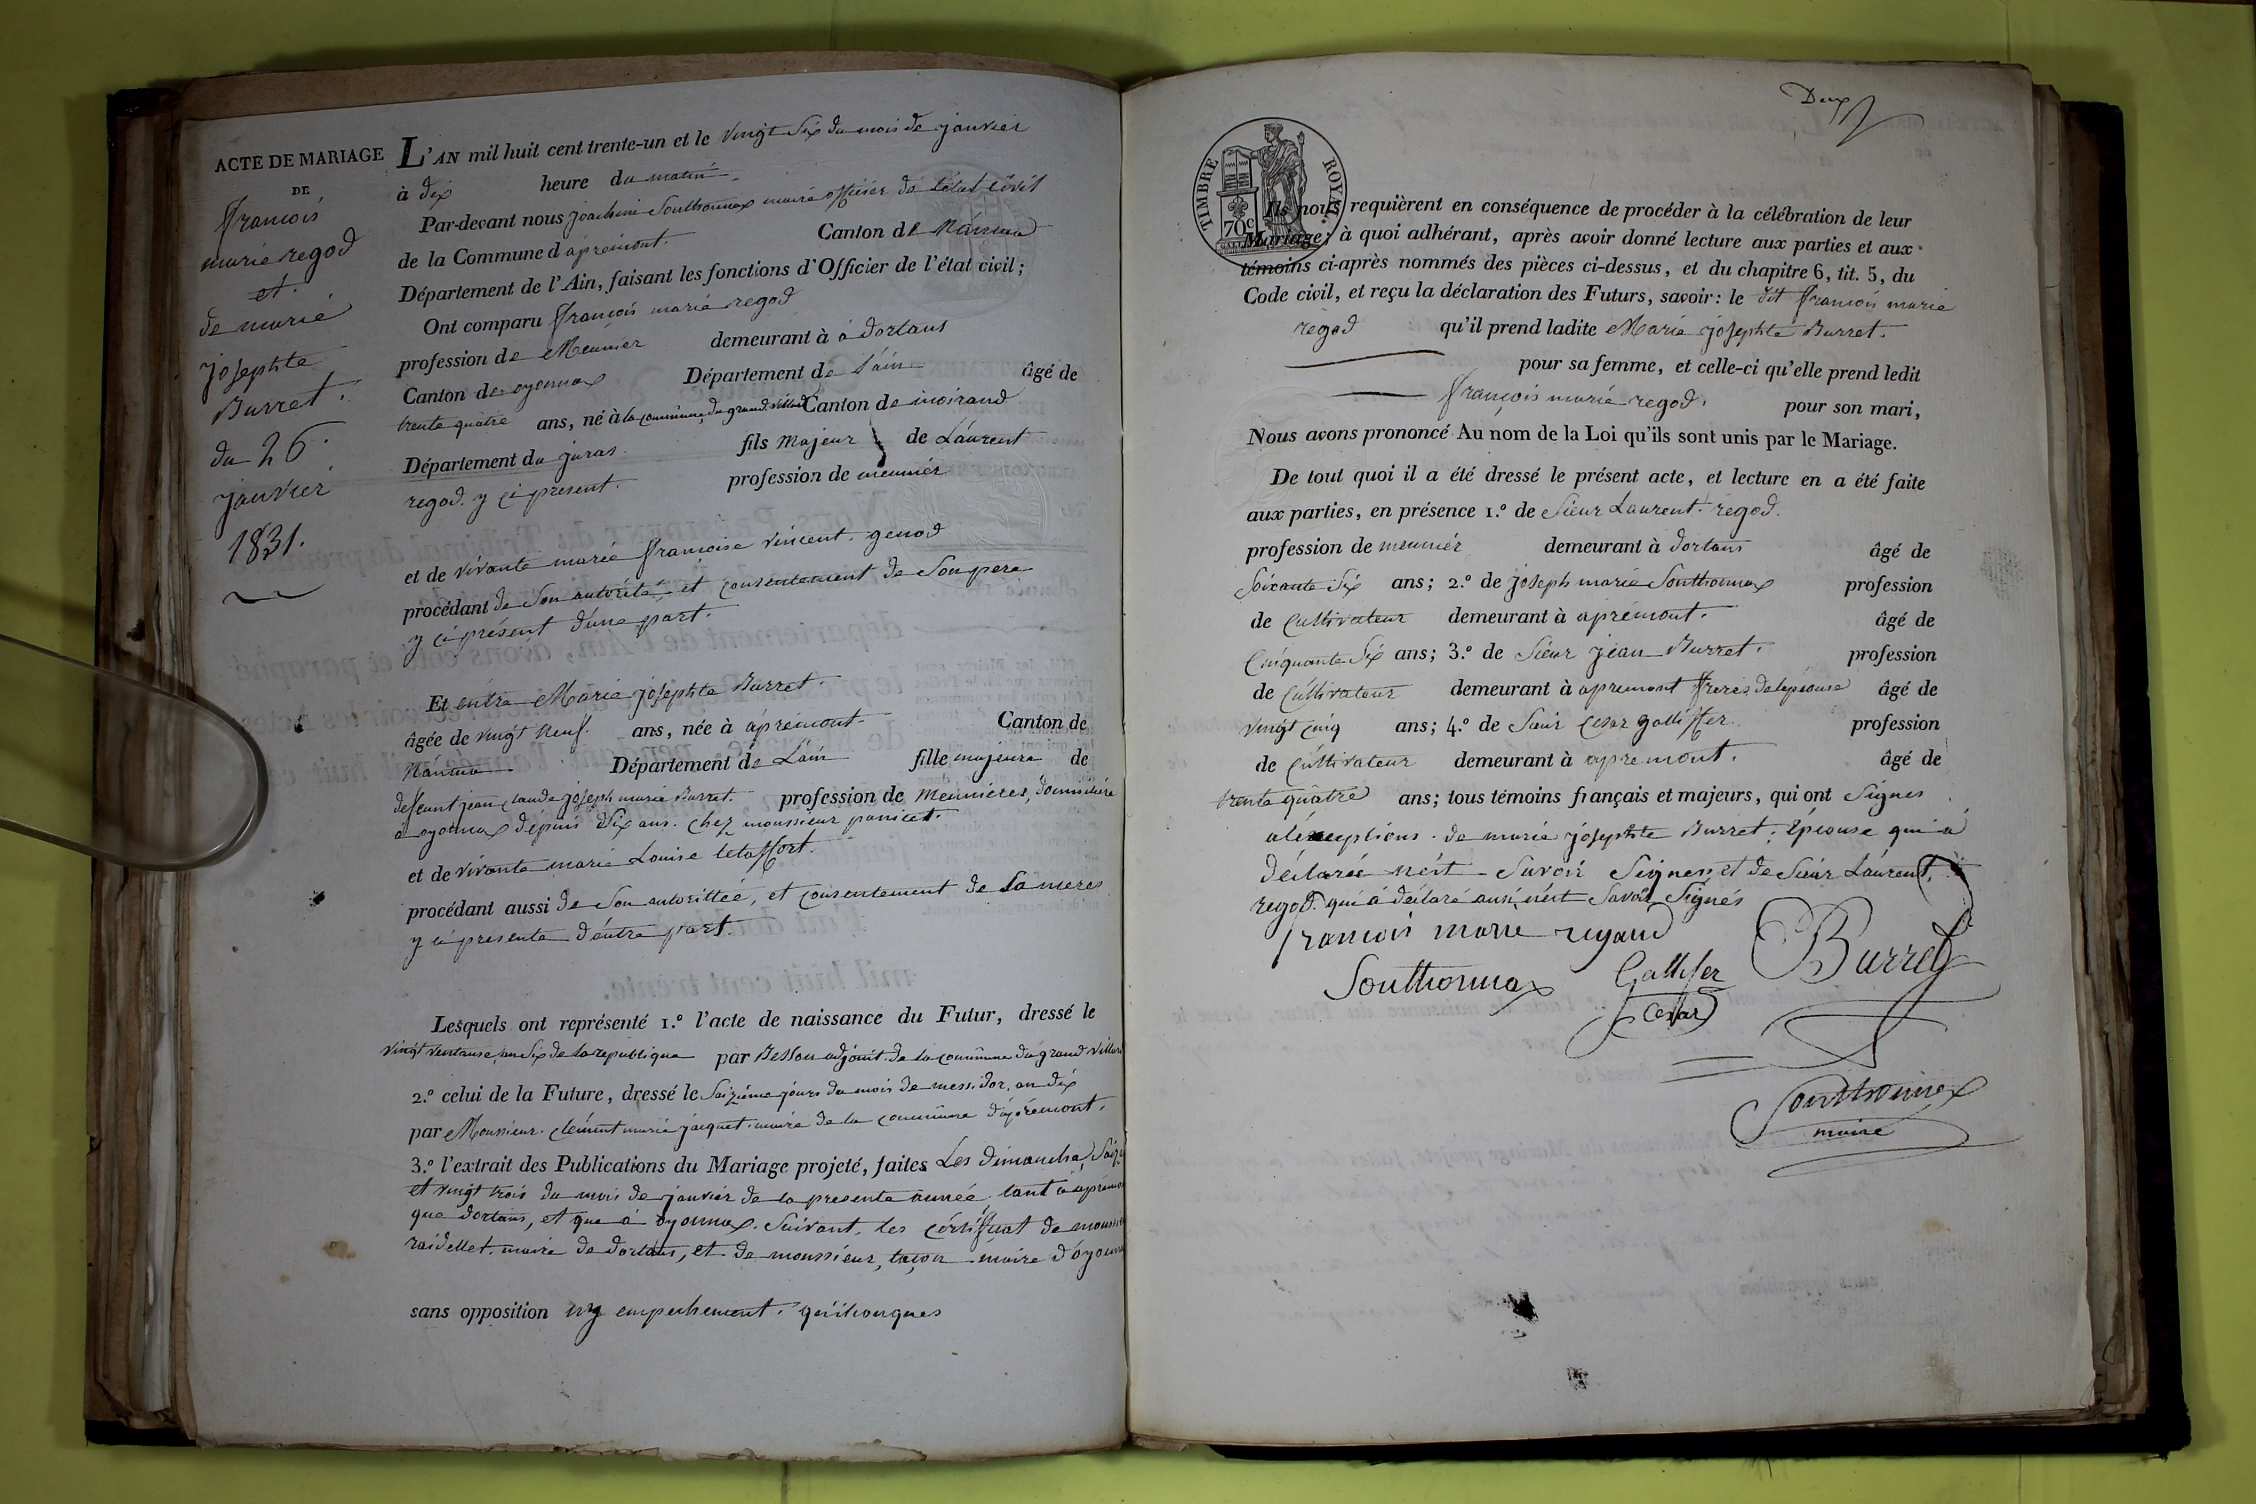 ACTE DE MARIAGE
DE
françois
marie regod
et.
de marie
josephte
Burret.
du 26.
janvier
1831.
L'AN mil huit cent trente-un et le vingt Six du mois de janvier
à dix heure du matin.
Par-devant nous joachim Southonnax maire officier de l'état civil
de la Commune d apremont. Canton de Nantua
Département de l'Ain, faisant les fonctions d'Officier de l'état civil;
Ont comparu françois marie regod
profession de Meunier demeurant à à dortans
Canton de oyonnax Département de l'ain âgé de
trente quatre ans, né à la commune, du grand villard Canton de moirand
Département du juras. fils Majeur de Laurent
regod. y çi présent. profession de meunier
et de vivante marie françoise vincent. genod
procédant de Son autorité, et consentement de Son pere
y çi présent d'une part.
Et entre Marie josephte Burret.
âgée de vingt Neuf. ans, née à apremont. Canton de
Nantua Département de L'ain fille majeure de
defeunt jean claude joseph marie Burret. profession de Meunieres, domiciliére
à oyonnax dépuis dix ans. chez moussieur
et de vivante marie Louise
procédant aussi de Son autorittée, et consentement de Sa meres
y çi presente d'éutre part.
Lesquels ont représenté 1.º l'acte de naissance du Futur, dressé le
vingt ventause, an Six de la republique par Besson adjoint de la commune du grand villard
2.º celui de la Future, dressé le Saizieme jours du mois de messidor, an dix
par Moussieur. clément marie jacquet. maire de la commune d'apremont.
3.º l'extrait des Publications du Mariage projeté, faites Les dimancha, Saize
et vingt trois du mois de janvier de la presente année. tant à apremon
que dortans, et que à oyonnax. Suivant. les certifficat de moussi
raidellet. maire de dortans, et. de moussieur, maire d'oyonna
sans opposition ny empechement. quihonques
Deux
TIMBRE ROYAL
70c
Ils nous requièrent en conséquence de procéder à la célébration de leur
Mariage; à quoi adhérant, après avoir donné lecture aux parties et aux
témoins ci-après nommés des pièces ci-dessus, et du chapitre 6, tit. 5, du
Code civil, et reçu la déclaration des Futurs, savoir: le dit françois marie
regod qu'il prend ladite Marie josephte Burret.
pour sa femme, et celle-ci qu'elle prend ledit
françois marie regod. pour son mari,
Nous avons prononcé Au nom de la Loi qu'ils sont unis par le Mariage.
De tout quoi il a été dressé le présent acte, et lecture en a été faite
aux parties, en présence 1.º de Sieur Laurent. regod.
profession de meunier demeurant à dortans âgé de
Soixante Six ans; 2.º de joseph marie Southonnax profession
de Cultivateur demeurant à apremont. âgé de
Cinquante Six ans; 3.º de Sieur jean Burret. profession
de Cultivateur demeurant à apremont freres de lepeouse âgé de
vingt cinq ans; 4.º de Sieur Cesar Galliffer profession
de Cultivateur demeurant à apremont. âgé de
trente quatre ans; tous témoins français et majeurs, qui ont Signes
de marie josephte Burret. Epeouse qui à
déclarée nért Savoir Signer, et de Sieur Laurent,
regod. qui à déclaré ausi, nért Savoir Signés
francois marie regaud
Burret
Southonnax
Galliffer
Cesar
Southonnax
maire